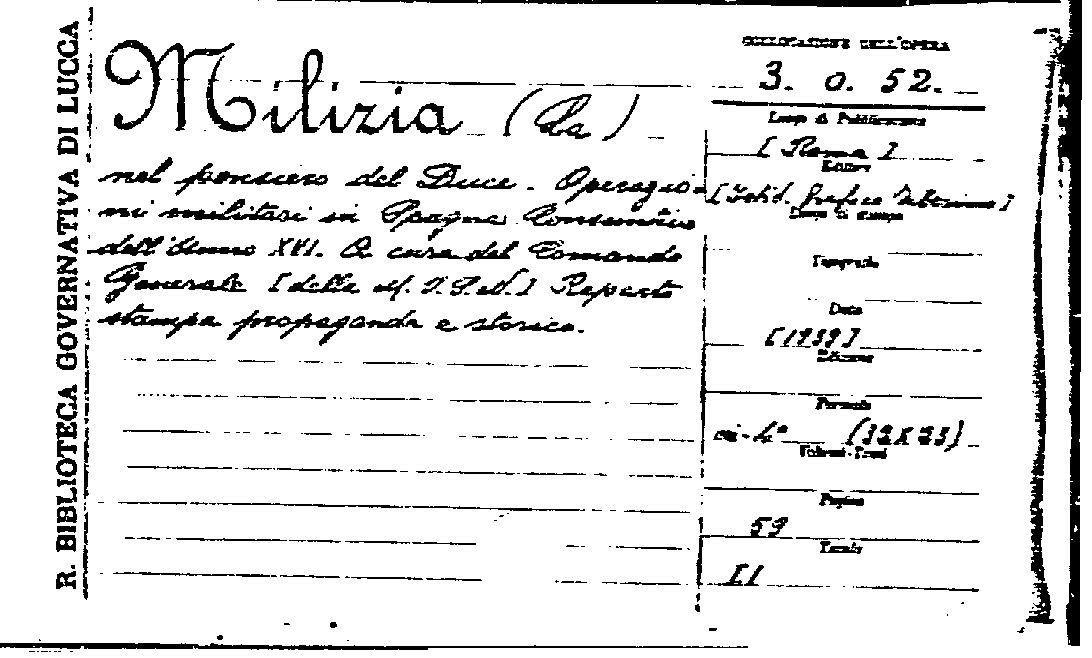 R. BIBLIOTECA GOVERNATIVA DI LUCCA
Milizia (La)
nel pensiero del Duce. Operazio-
ni militari in Spagna Consuntivo
dell'Anno XVI. A cura del Comando
Generale [della M.V.S.N.] Reparto
stampa propaganda e storico.
COLLOCAZIONE DELL'OPERA
3. o. 52.
Luogo di Pubblicazione
[Roma]
Editore
[Istit. Grafico Tiberino]
Luogo di stampa
Tipografo
Data
[1939]
Edizione
Formato
in-4° (32X23)
Volumi-Tomi
Pagine
59
Tavole
[1